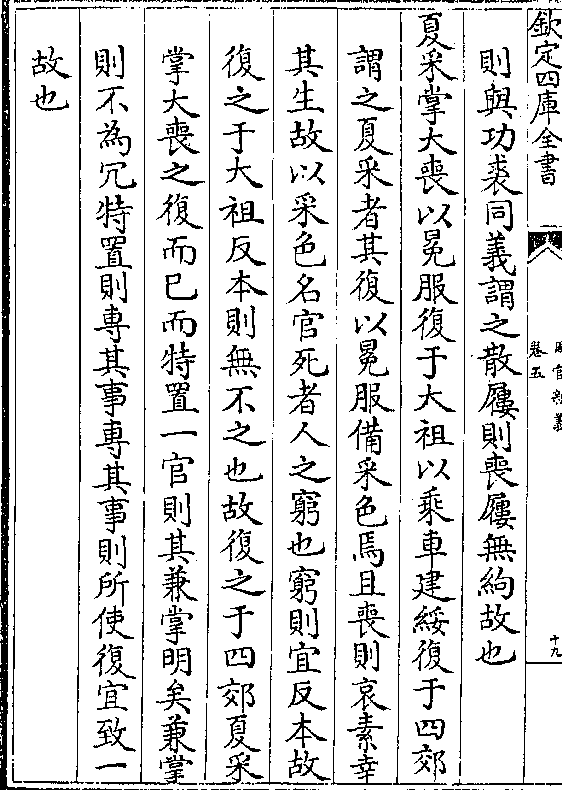 欽定四庫全書
周官新義
卷五
十九
則與功裘同義謂之散屨則喪屨無絇故也
夏采掌大喪以冕服復于大祖以乘車建綏復于四郊
謂之夏采者其復以冕服備采色焉且喪則哀素幸
其生故以采色名官死者人之窮也窮則宜反本故
復之于大祖反本則無不之也故復之于四郊夏采
掌大喪之復而已而特置一官則其兼掌明矣兼掌
則不為冗特置則專其事專其事則所使復宜致一
故也